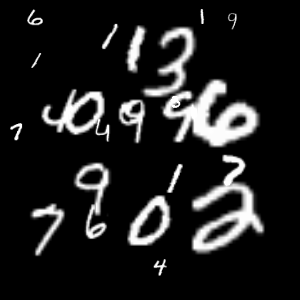 6 1 9
1 1 3
1
4 0 4 9 9 6 6
7
9 1 7
7 6 0 2
4